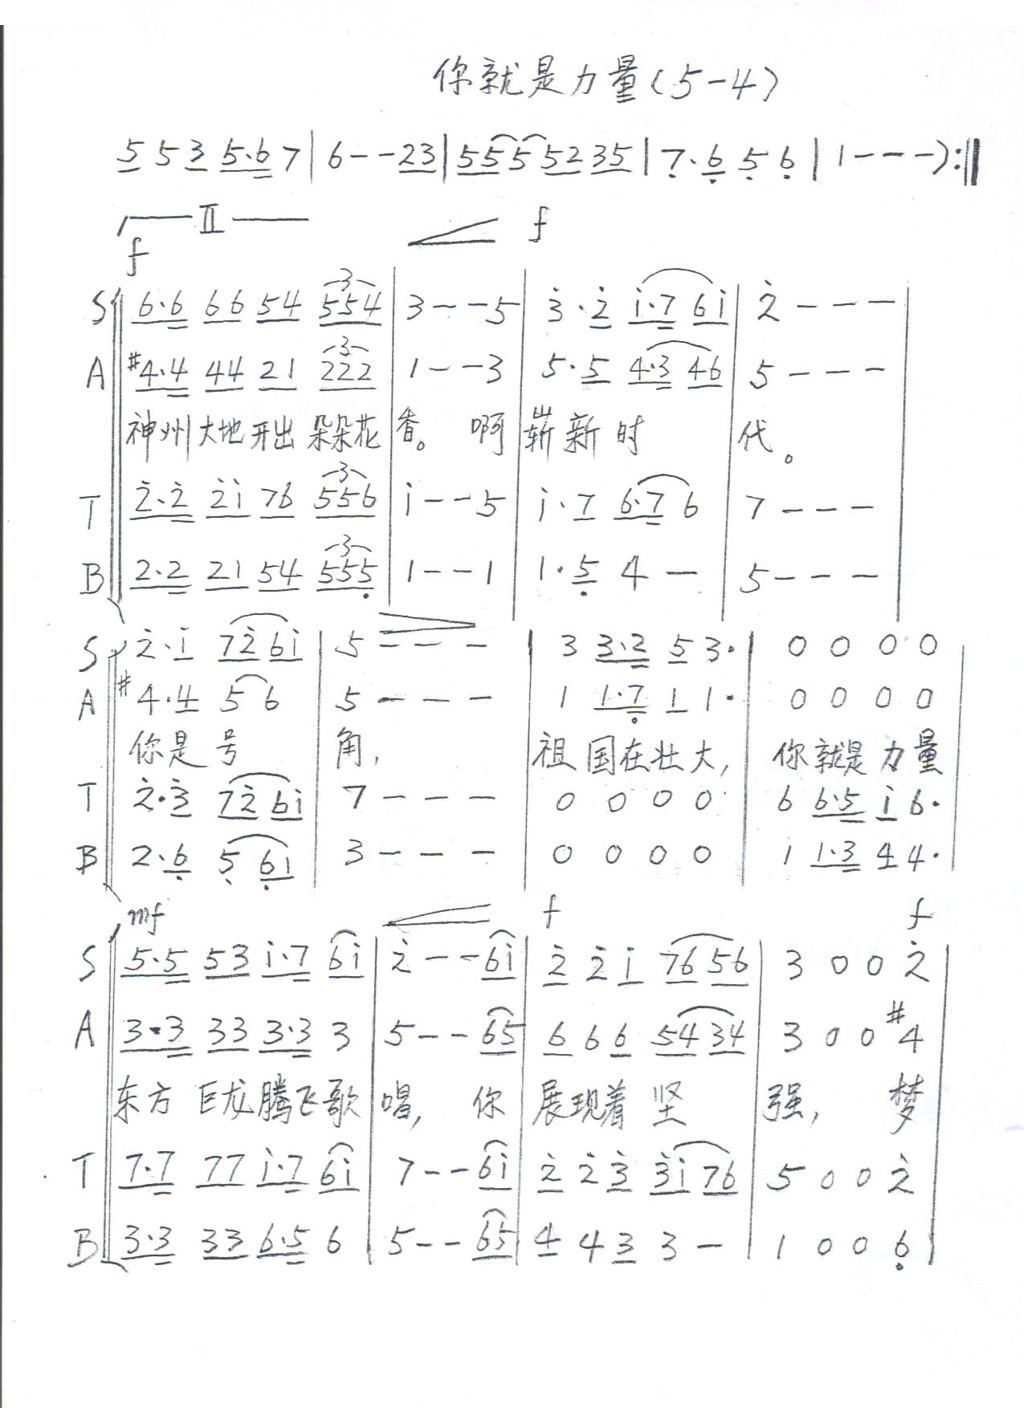 你就是力量(5-4)
5 5 3 5·6 7 | 6 - - 23 | 55 5 52 35 | 7̣·6̣ 5̣ 6̣ | 1 - - -):‖
Ⅱ
f f
S 6·6 66 54 554 | 3 - - 5 | 3̇·2̇ i·7 6i | 2̇ - - -
A #4·4 44 21 222 | 1 - - 3 | 5·5 4·3 46 | 5 - - -
神州大地开出朵朵花香。 啊 崭新时 代。
T 2̇·2̇ 2̇i 76 556 | i - - 5 | i·7 6·7 6 | 7 - - -
B 2·2 21 54 555̣ | 1 - - 1 | 1·5̣ 4 - | 5 - - -
S 2̇·i 72̇ 6i | 5 - - - | 3 3·2 5 3· | 0 0 0 0
A #4·4 5 6 | 5 - - - | 1 1·7̣ 1 1· | 0 0 0 0
你是号 角, 祖国在壮大, 你就是力量
T 2̇·3̇ 72̇ 6i | 7 - - - | 0 0 0 0 | 6 6·5 i 6·
B 2·6̣ 5̣ 6̣1 | 3 - - - | 0 0 0 0 | 1 1·3 4 4·
mf f f
S 5·5 53 i·7 6i | 2̇ - - 6i | 2̇ 2̇ i 76 56 | 3 0 0 2̇
A 3·3 33 3·3 3 | 5 - - 65 | 6 6 6 54 34 | 3 0 0 #4
东方巨龙腾飞歌唱, 你 展现着坚 强, 梦
T 7·7 77 i·7 6i | 7 - - 6i | 2̇ 2̇ 3̇ 3̇i 76 | 5 0 0 2̇
B 3·3 33 6·5 6 | 5 - - 65 | 4 4 3 3 - | 1 0 0 6̣